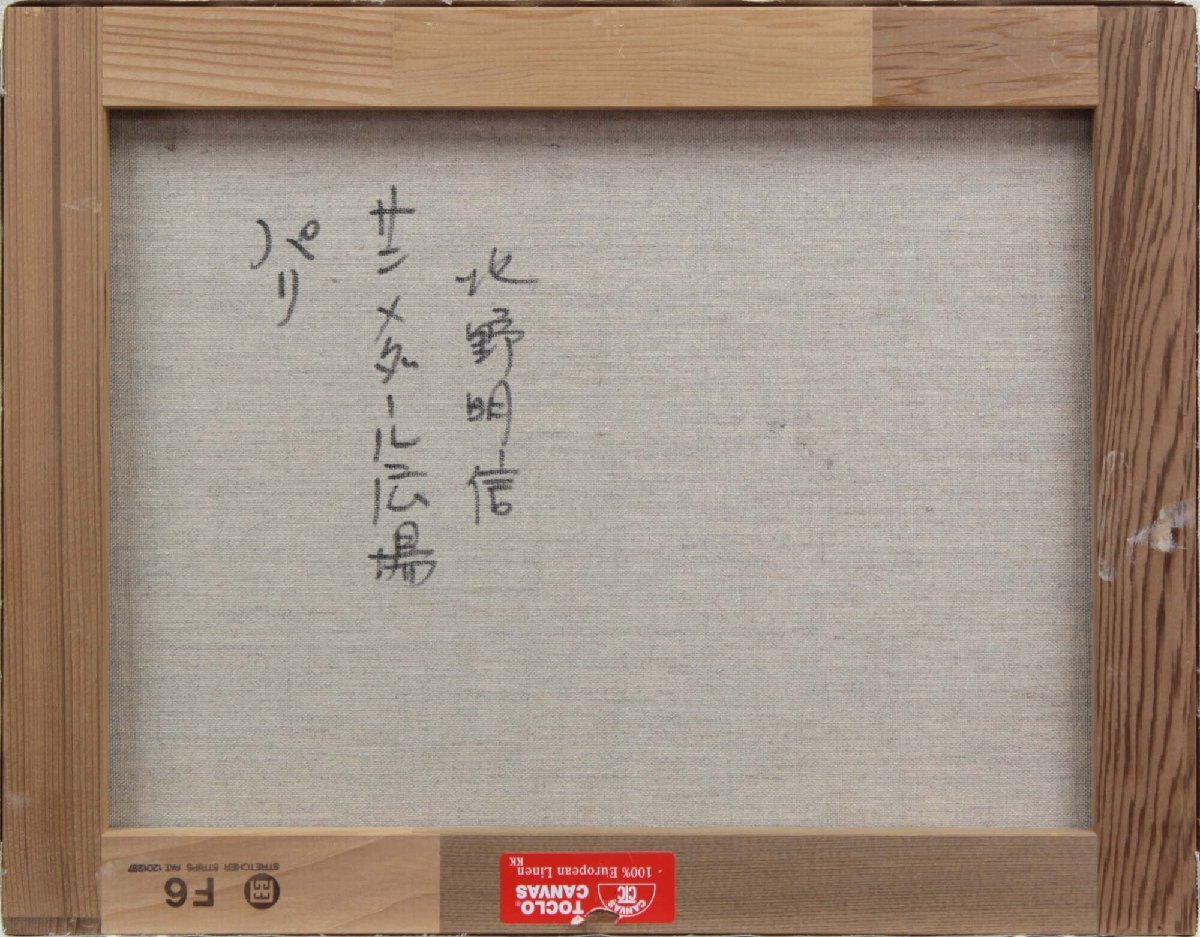 北野明信
サンメダール広場
パリ
STRETCHER STRIPS PAT. 1201287
F6
TOCLO® CANVAS
CANVAS CTC
・100% European Linen
KK